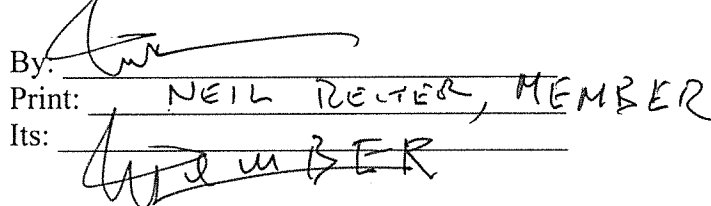 By:
Print: NEIL REITER, MEMBER
Its: MEMBER